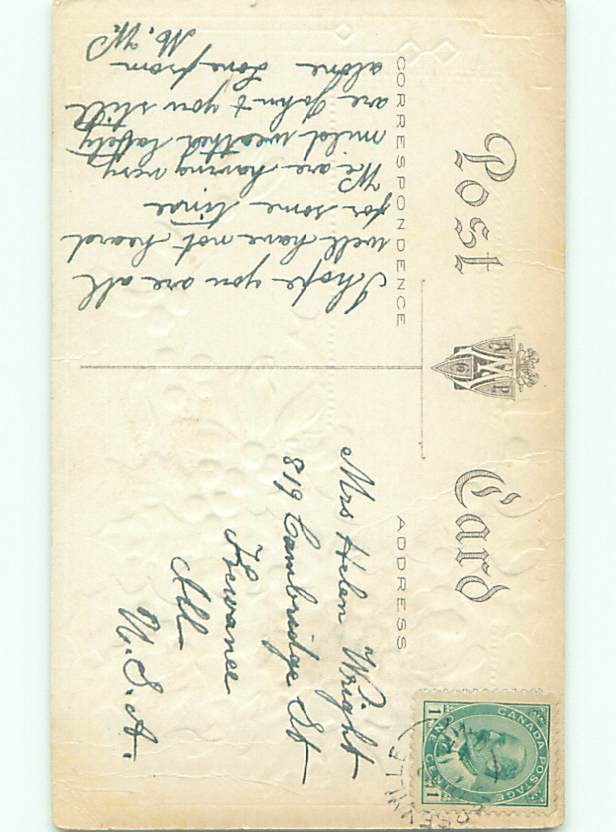 Post Card
CORRESPONDENCE
ADDRESS
I hope you are all
well have not heard
for some time
We are having very
mild weather lately
are John & you still
alone Love from
M. W.
Mrs Helen Wright
819 Cambridge St
Kewanee
Ill
U.S.A.
CANADA POSTAGE
ONE CENT
1 1